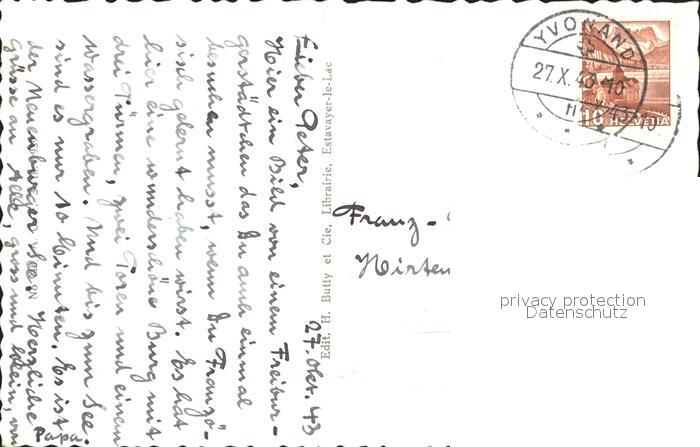 27. Okt. 43
Lieber Peter,
Hier ein Bild von einem Freibur-
gerstädtchen das Du auch einmal
besuchen musst, wenn Du Franzö-
sisch gelernt haben wirst. Es hat
hier eine wunderschöne Burg mit
drei Türmen, zwei Toren und einem
Wassergraben. Und bis zum See
sind es nur 10 Minuten. Es ist
der Neuenburger See. Herzliche
Grüsse an Alle, gross und klein, von
Papa.
Edit. H. Butty et Cie, Librairie, Estavayer-le-Lac
YVONAND
27.X.43-10
HELVETIA
10
Franz-
Hirten
privacy protection
Datenschutz